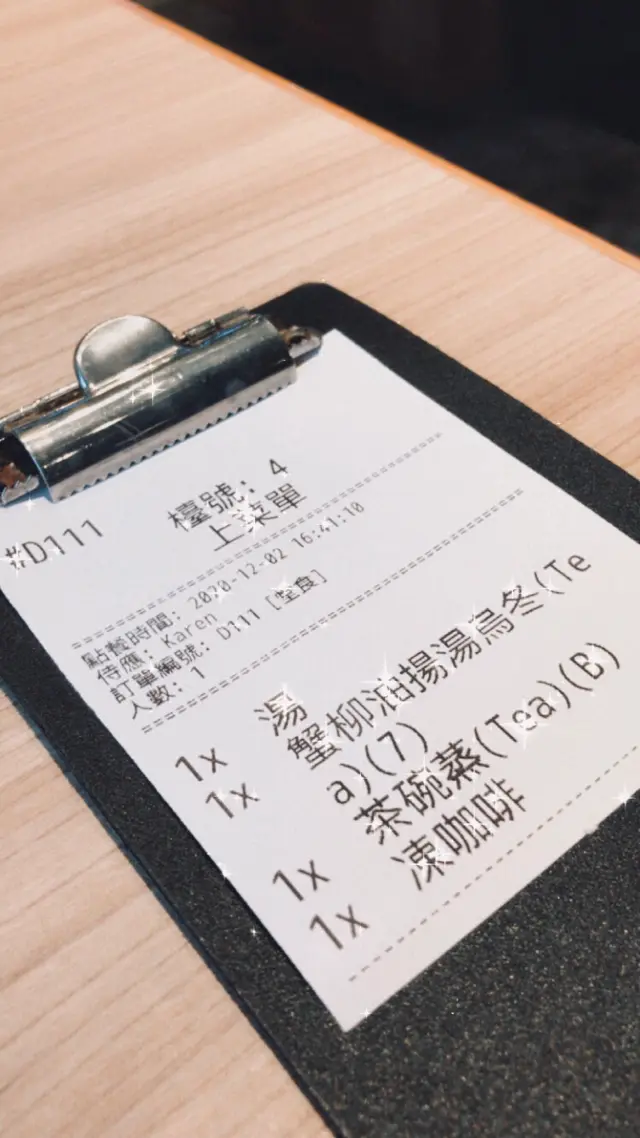 檯號: 4
#D111
上菜單
點餐時間: 2020-12-02 16:41:10
侍應: Karen
訂單編號: D111 [堂食]
人數: 1
1x 湯
1x 蟹柳油揚湯烏冬(Te
a)(7)
1x 茶碗蒸(Tea)(B)
1x 凍咖啡